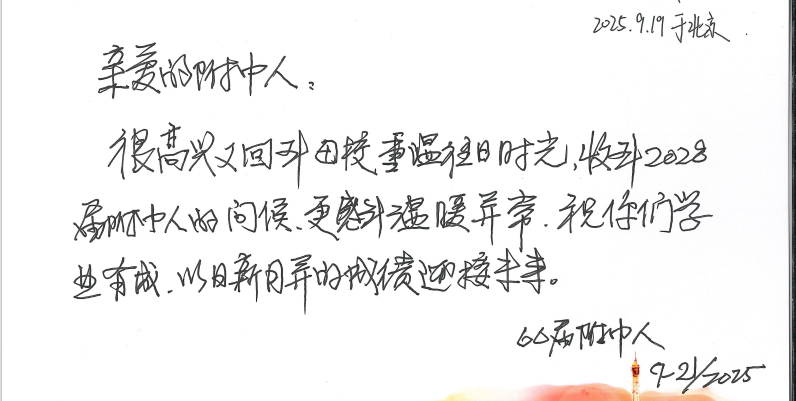 2025.9.19 于北京
亲爱的附中人：
很高兴又回到母校重温往日时光,收到2028
届附中人的问候、更感到温暖异常.祝你们学
业有成.以日新月异的成绩迎接未来。
66届附中人
9-21/2025